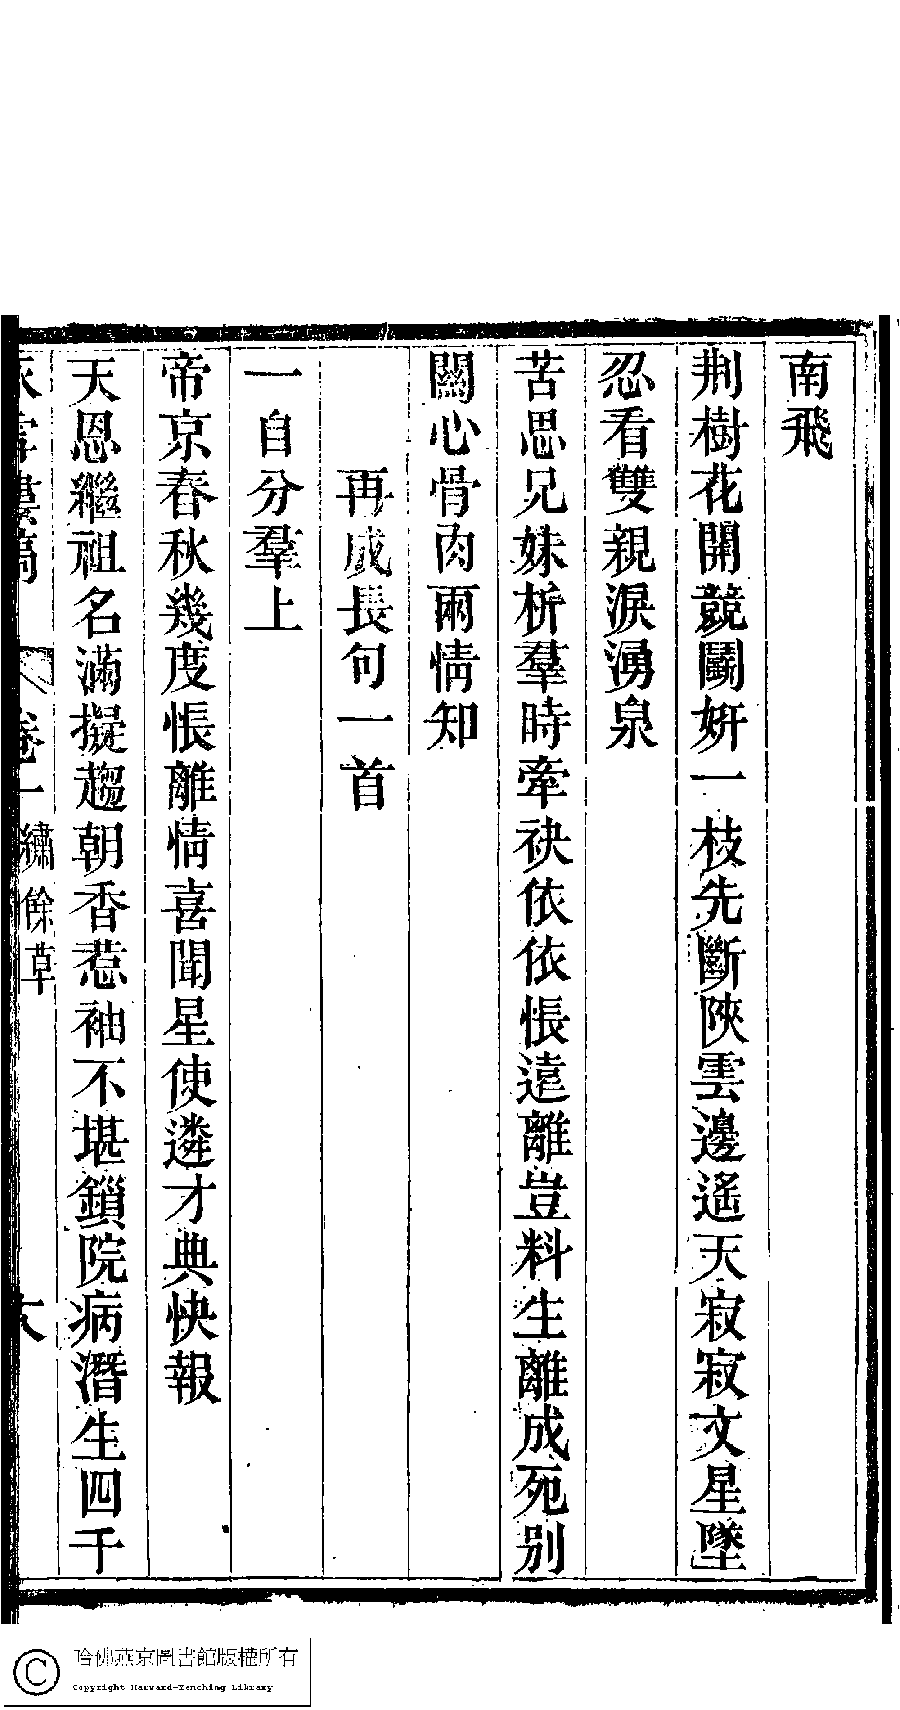 南飛
荆樹花開競鬭妍一枝先斷陝雲邊遙天寂寂文星墜
忍看雙親淚湧泉
苦思兄妹析羣時牽袂依依悵遠離豈料生離成死别
關心骨肉兩情知
再成長句一首
一自分羣上
帝京春秋幾度悵離情喜聞星使遴才典快報
天恩繼祖名滿擬趨朝香惹袖不堪鎖院病潛生四千
卷一 繡餘草
哈佛燕京圖書館版權所有
Copyright Harvard-Yenching Library